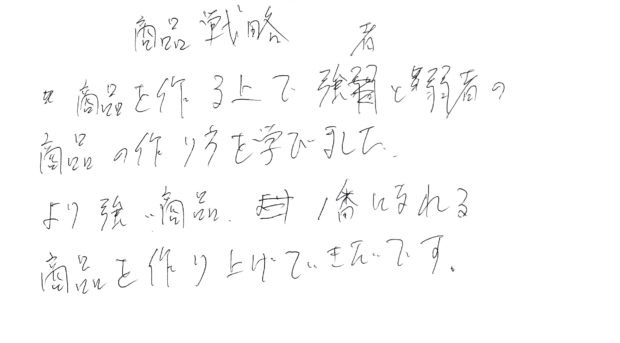 商品戦略
商品を作る上で強者と弱者の
商品の作り方を学びました。
より強い商品、1番になれる
商品を作り上げていきたいです。